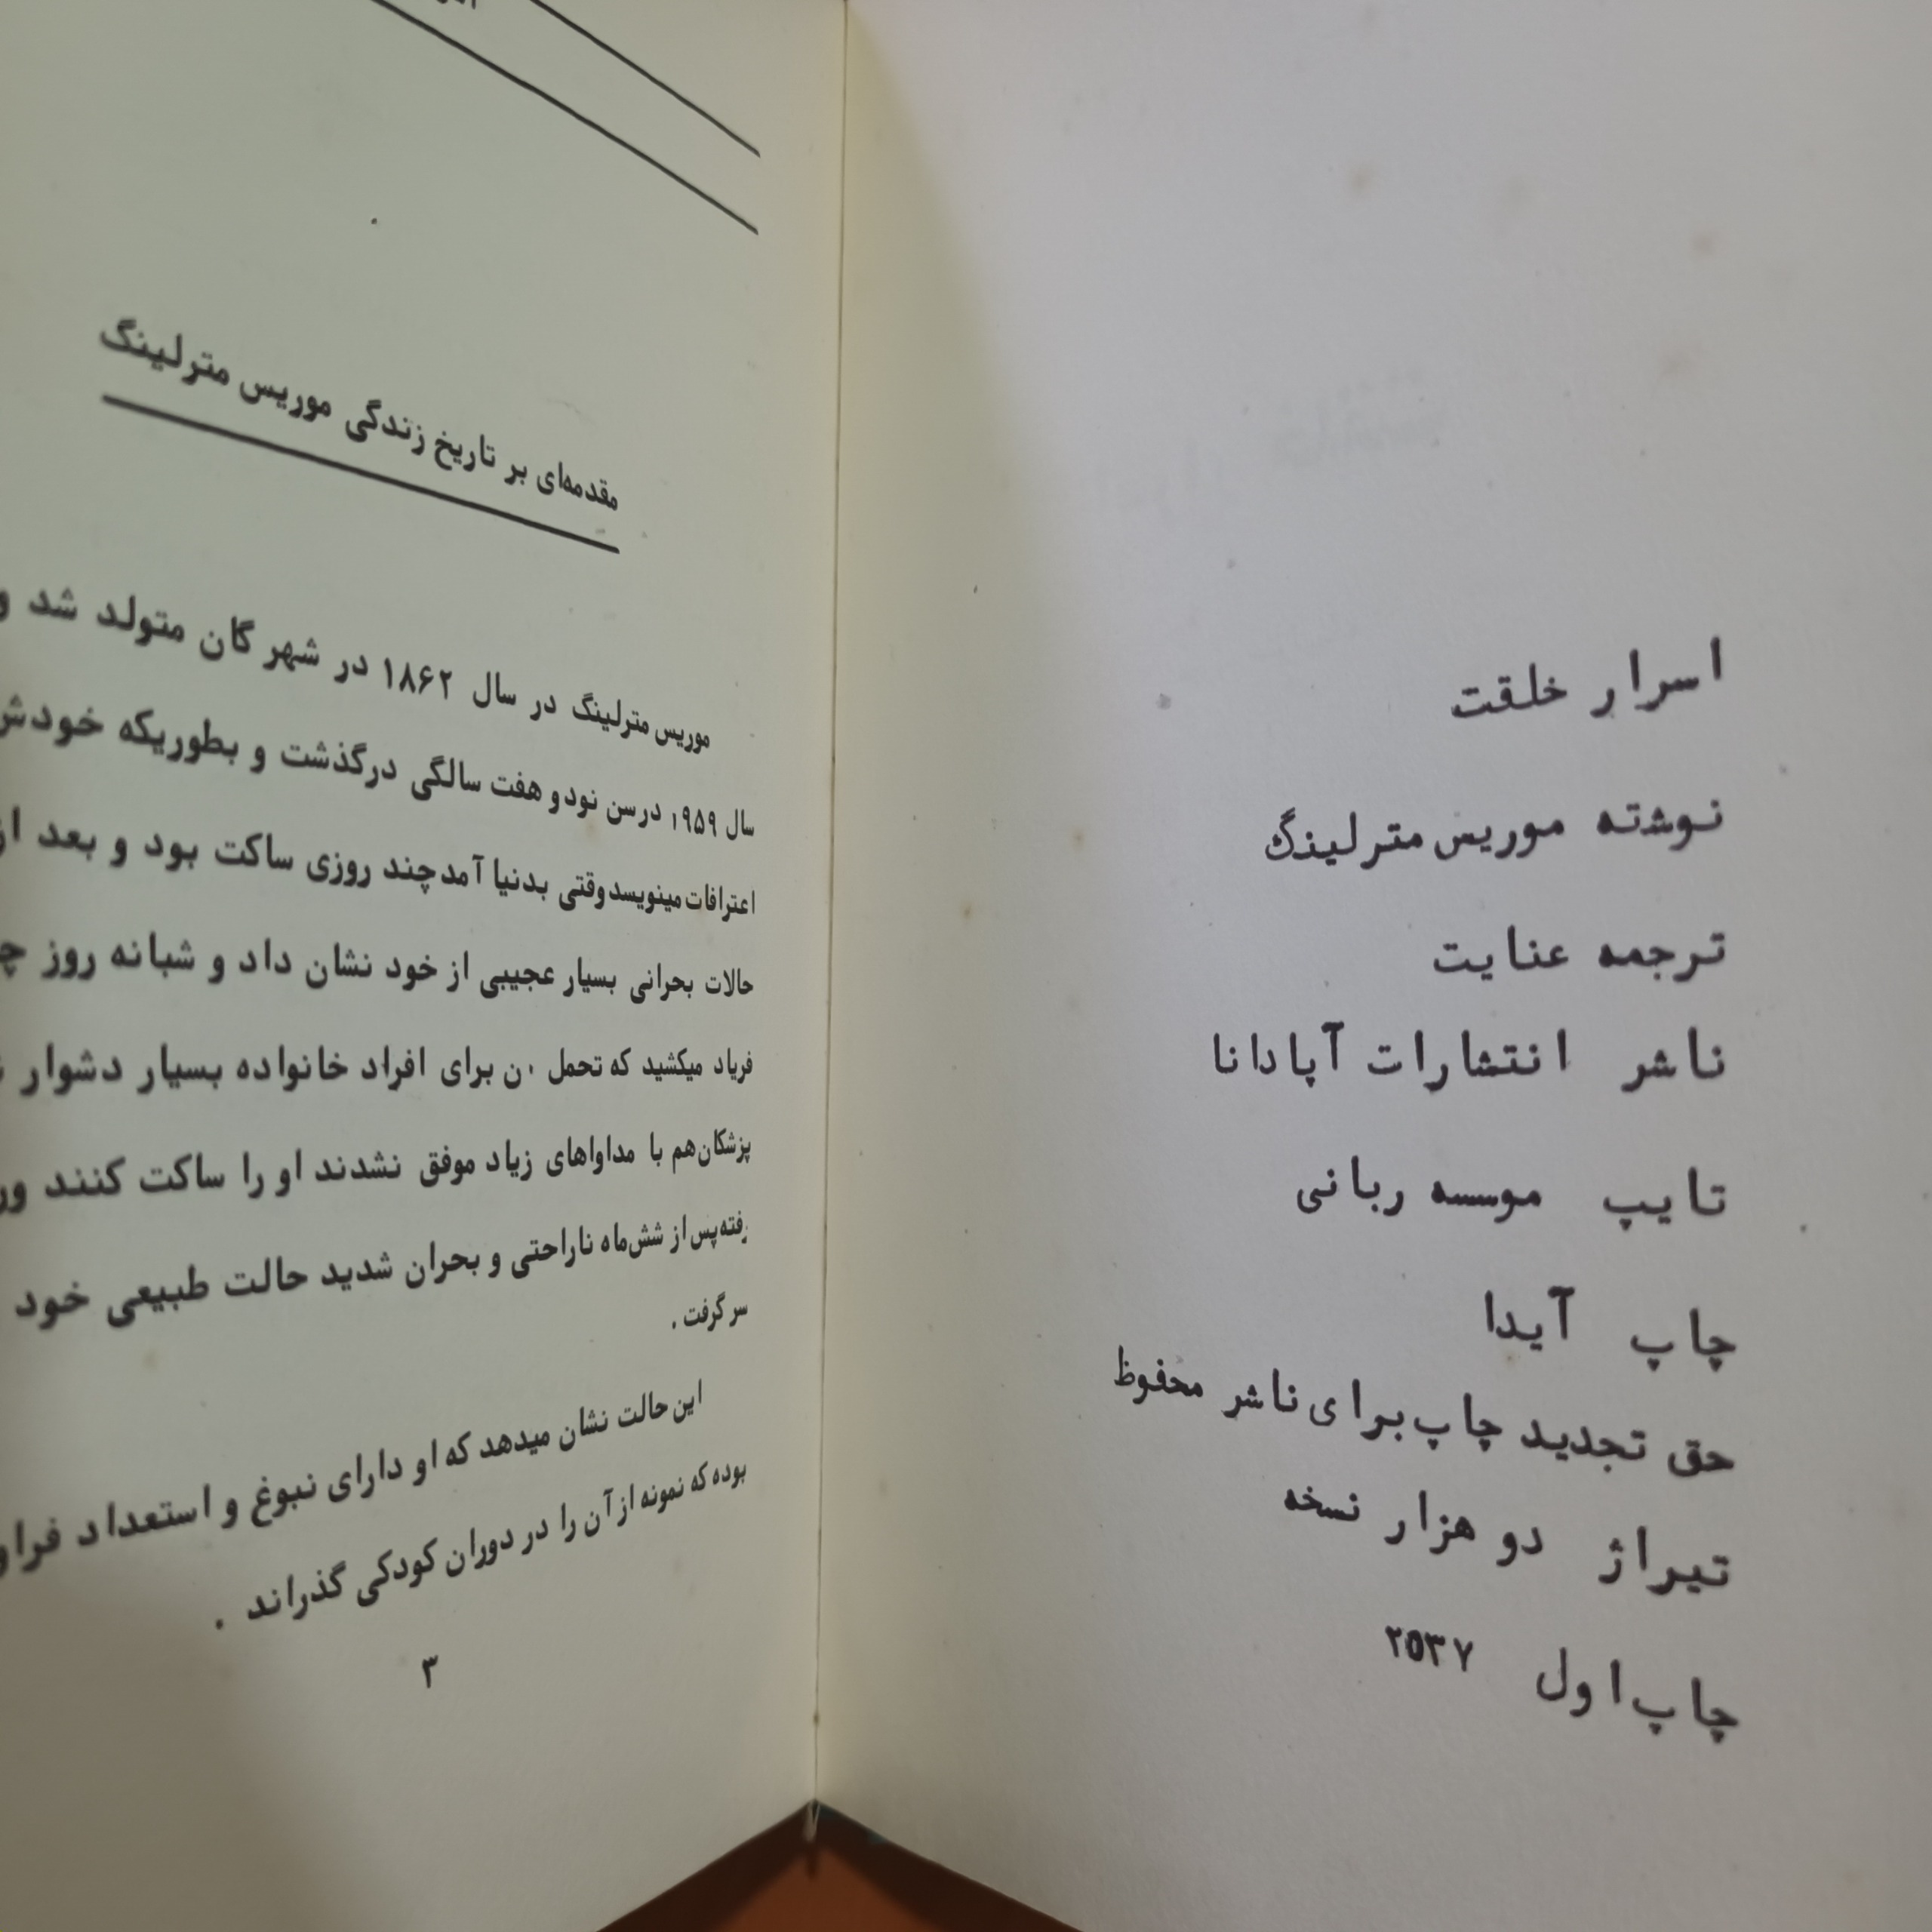 اسرار خلقت
نوشته موریس مترلینگ
ترجمه عنایت
ناشر انتشارات آپادانا
تایپ موسسه ربانی
چاپ آیدا
حق تجدید چاپ برای ناشر محفوظ
تیراژ دو هزار نسخه
چاپ اول ۲۵۳۷
مقدمه‌ای بر تاریخ زندگی موریس مترلینگ
موریس مترلینگ در سال ۱۸۶۲ در شهر گان متولد شد و
سال ۱۹۵۹ درسن نود و هفت سالگی درگذشت و بطوریکه خودش
اعترافات مینویسد وقتی بدنیا آمد چند روزی ساکت بود و بعد از
حالات بحرانی بسیار عجیبی از خود نشان داد و شبانه روز
فریاد میکشید که تحمل ن برای افراد خانواده بسیار دشوار
پزشکان هم با مداواهای زیاد موفق نشدند او را ساکت کنند
رفته پس از شش‌ماه ناراحتی و بحران شدید حالت طبیعی خود
سر گرفت .
این حالت نشان میدهد که او دارای نبوغ و استعداد
بوده که نمونه از آن را در دوران کودکی گذراند .
۳